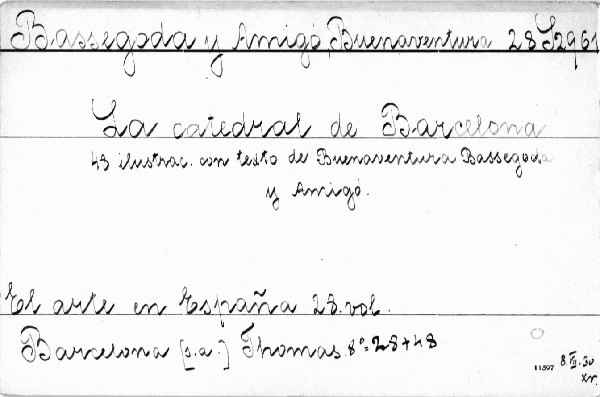 Bassegoda y Amigó, Buenaventura 28 S2961
La catedral de Barcelona
43 ilustrac. con texto de Buenaventura Bassegoda
y Amigó.
El arte en España 28. vol.
Barcelona [s.a.] Thomas. 8º= 28+48
11597 8.VII.30